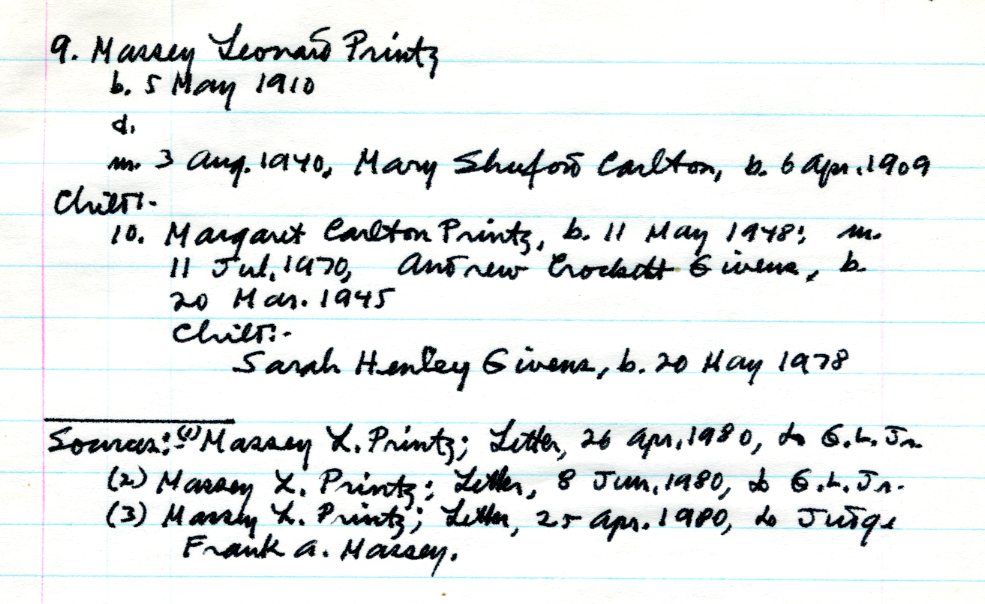 9. Massey Leonard Printz
b. 5 May 1910
d.
m. 3 Aug. 1940, Mary Shuford Carlton, b. 6 Apr. 1909
Child:-
10. Margaret Carlton Printz, b. 11 May 1948; m.
11 Jul. 1970, Andrew Crockett Givens, b.
20 Mar. 1945
Child:-
Sarah Henley Givens, b. 20 May 1978
Sources: (1) Massey L. Printz; Letter, 26 Apr. 1980, to G.L. Jr.
(2) Massey L. Printz; Letter, 8 Jun. 1980, to G.L. Jr.
(3) Massey L. Printz; Letter, 25 Apr. 1980, to Judge
Frank A. Massey.